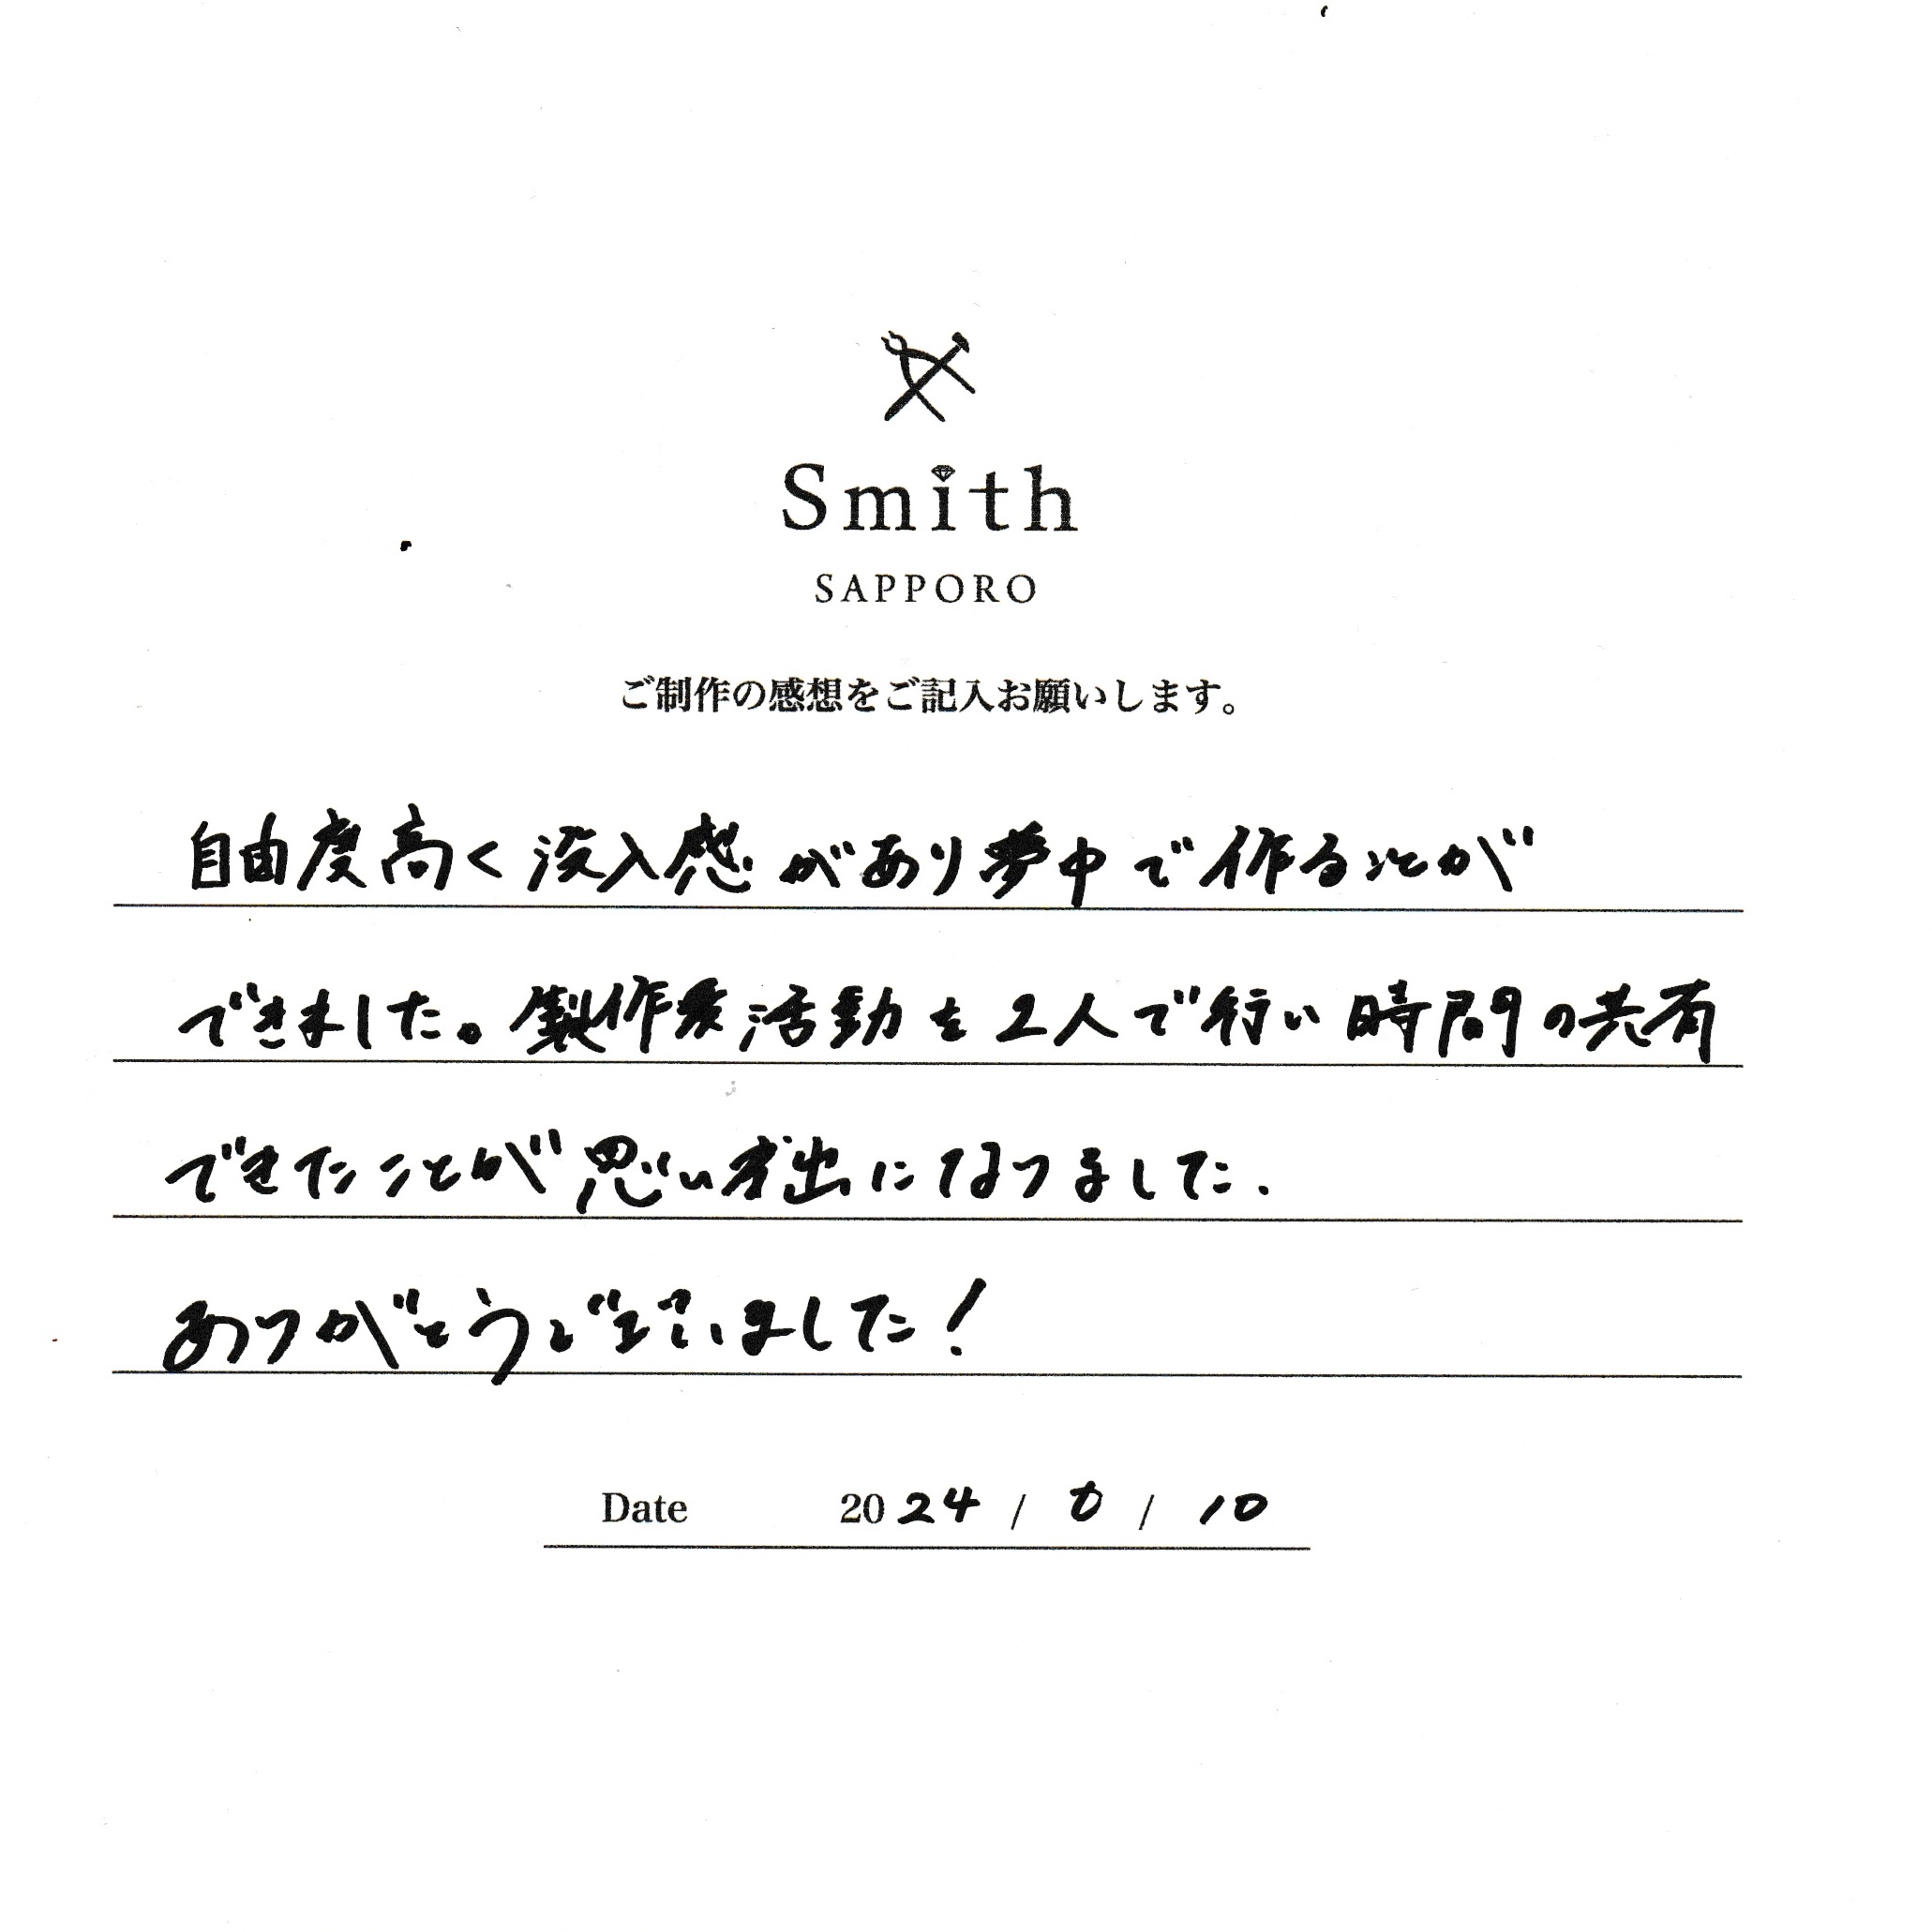 Smith
SAPPORO
ご制作の感想をご記入お願いします。
自由度高く没入感があり夢中で作ることが
できました。製作活動を2人で行い時間の共有
できたことが思い出になりました.
ありがとうございました!
Date 2024 / / 10